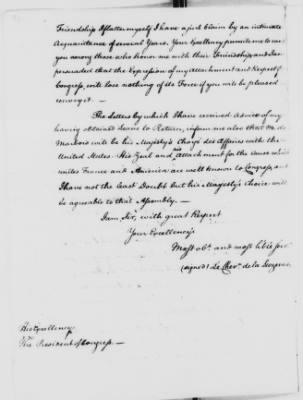 Friendship I flatter myself I have a just Claim by an intimate
Acquaintance of several Years. Your Excellency permits me to see
you among those who honor me with their Friendship, and I am
persuaded that the Expression of my Attachment and Respect for
Congress, will lose nothing of its Force if you will be pleased
convey it. —
The Letters by which I have received Advice of my
having obtained Leave to Return, inform me also that Mr. de
Marbois will be his Majesty's Chargé des Affaires with the
United States. His Zeal and his attachment for the Cause which
unites France and America are well known to Congress, and
I have not the least Doubt but his Majesty's Choice will
be agreeable to that Assembly. —
I am, Sir, with great Respect
Your Excellency's
Most obt. and most h'ble Servt.
(signed) Le Chevr. de la Luzerne
His Excellency
The President of Congress. —